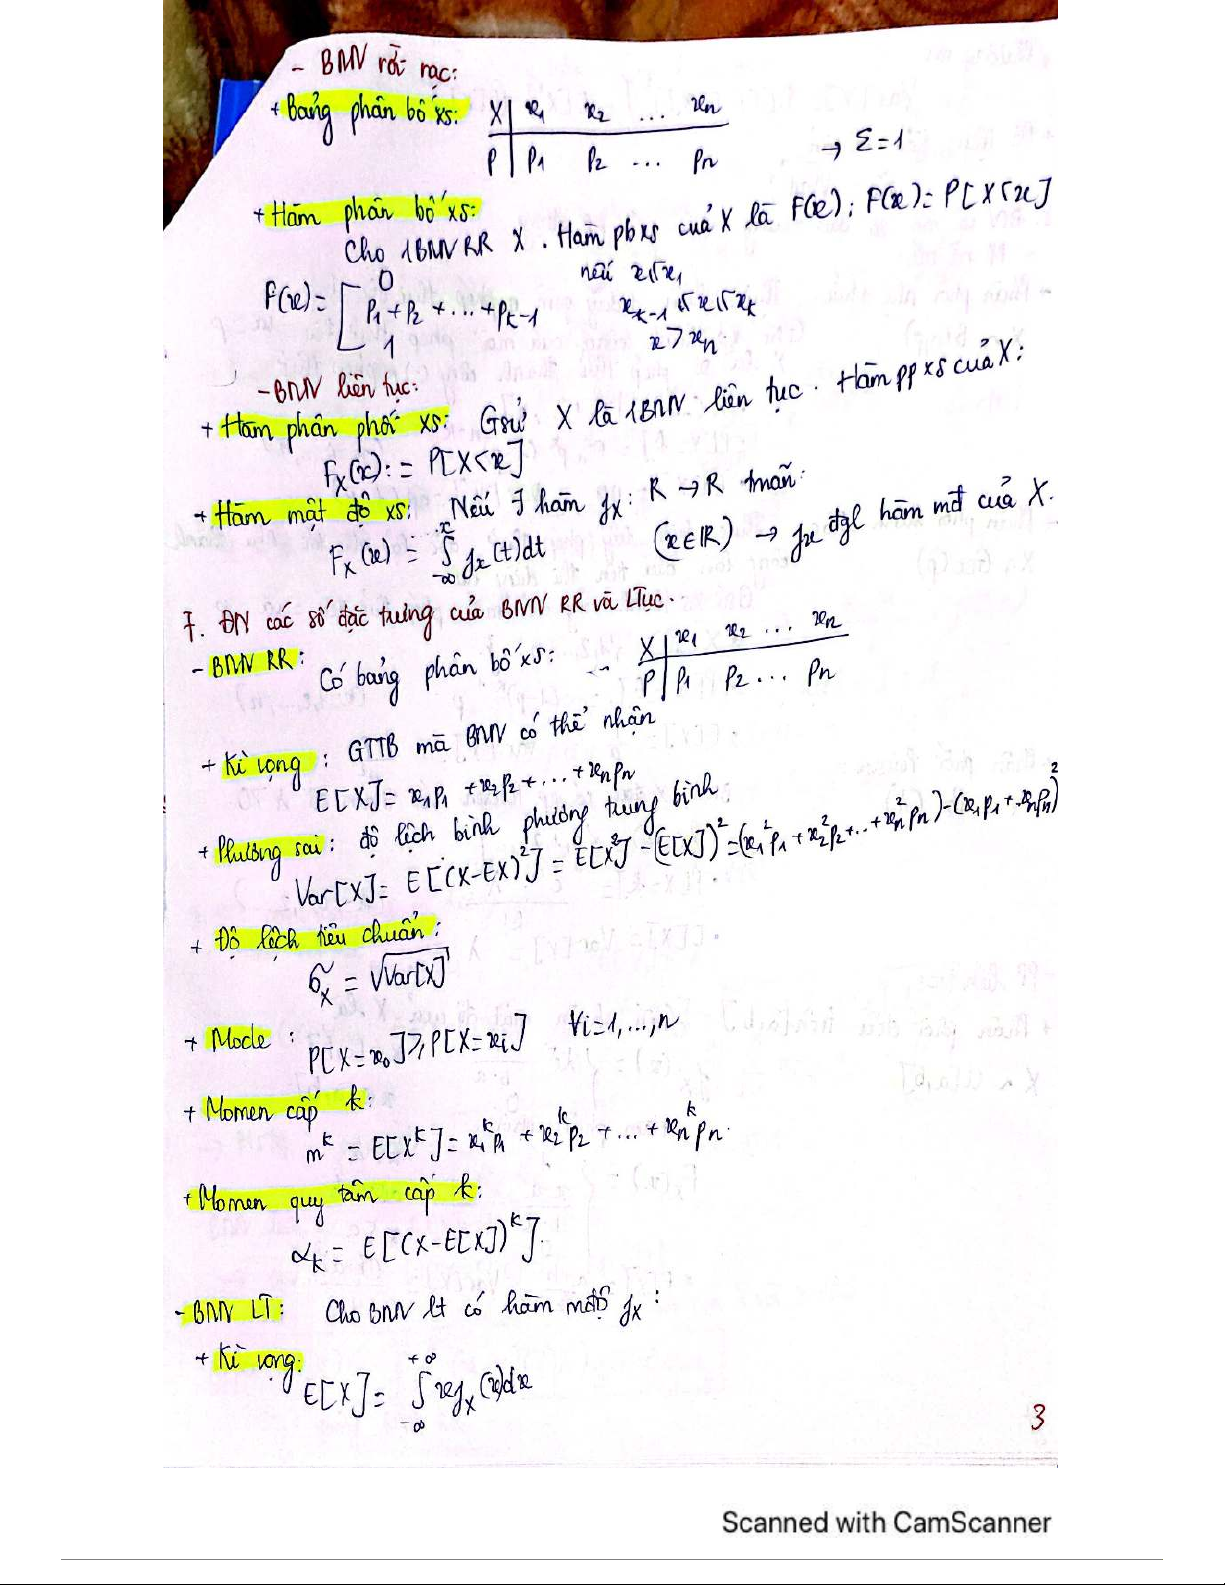 - BNN rời rạc:
+ Bảng phân bố xs: X | x₁ x₂ ... xₙ
P | P₁ P₂ ... Pₙ → Σ=1
+ Hàm phân bố xs:
Cho 1BNN RR X. Hàm pbxs của X là F(x); F(x)= P[X<x]
F(x)= [ 0 nếu x≤x₁
P₁+P₂+...+Pₖ₋₁ xₖ₋₁≤x≤xₖ
1 x>xₙ
- BNN liên tục:
+ Hàm phân phối xs: Gsử X là 1BNN liên tục. Hàm pp xs của X:
Fₓ(x):= P[X<x]
+ Hàm mật độ xs: Nếu ∃ hàm fₓ: R→R tmãn:
Fₓ(x) = ∫₋∞ˣ fₓ(t)dt (x∈R) → fₓ đgl hàm mđ của X.
7. ĐN các số đặc trưng của BNN RR và LTục.
- BNN RR: Có bảng phân bố xs: X | x₁ x₂ ... xₙ
P | P₁ P₂ ... Pₙ
+ Kì vọng: GTTB mà BNN có thể nhận
E[X]= x₁p₁ +x₂p₂+...+xₙpₙ
+ Phương sai: độ lệch bình phương trung bình
Var[X]= E[(X-EX)²] = E[X²] -(E[X])²=(x₁²p₁+x₂²p₂+..+xₙ²pₙ)-(x₁p₁+..xₙpₙ)²
+ Độ lệch tiêu chuẩn:
σₓ = √Var[X]
+ Mode: P[X=x₀]≥P[X=xᵢ] ∀i=1,...,n
+ Momen cấp k:
mᵏ = E[Xᵏ]= x₁ᵏp₁ + x₂ᵏp₂ +...+xₙᵏpₙ.
+ Momen quy tâm cấp k:
αₖ= E[(X-E[X])ᵏ].
- BNN LT: Cho BNN lt có hàm mđộ fₓ:
+ Kì vọng:
E[X]= ∫₋∞⁺∞ xfₓ(x)dx
3
Scanned with CamScanner